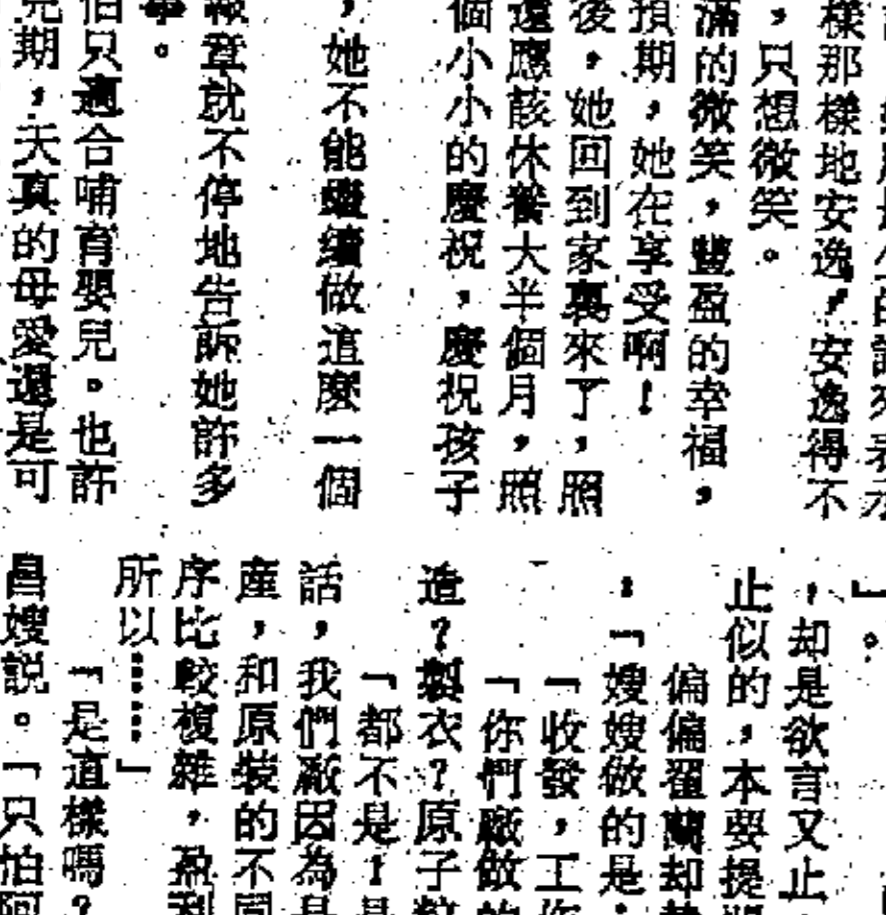 樣那樣地安逸，安逸得不
，只想微笑。
滿的微笑，豐盈的幸福，
預期，她在享受啊！
後，她回到家裏來了，照
還應該休養大半個月，照
個小小的慶祝，慶祝孩子
，她不能繼續做這麼一個
報章就不停地告訴她許多
。
怕只適合哺育嬰兒。也許
期，天真的母愛還是可
」。
，却是欲言又止
止似的，本要提
偏偏翟蘭却
：「嫂嫂做的是：
「收發，工作
「你們廠做的
造？製衣？原子粒
「都不是！是
話，我們廠因為是
產，和原裝的不同
序比較複雜，盈利
所以……」
「是這樣嗎？
昌嫂説。「只怕阿